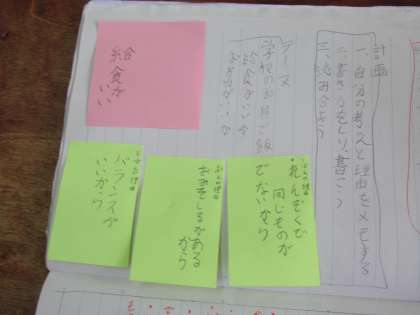 計画
一、自分の考えと理由をメモする
二、書き方をしり、書こう
三、読み合おう
テーマ
学校のお昼ご飯
給食がいいか
お弁当がいいか
給食が
いい
れんぞくで
同じものが
でないから
おみそしるがある
から
バランスが
いいから